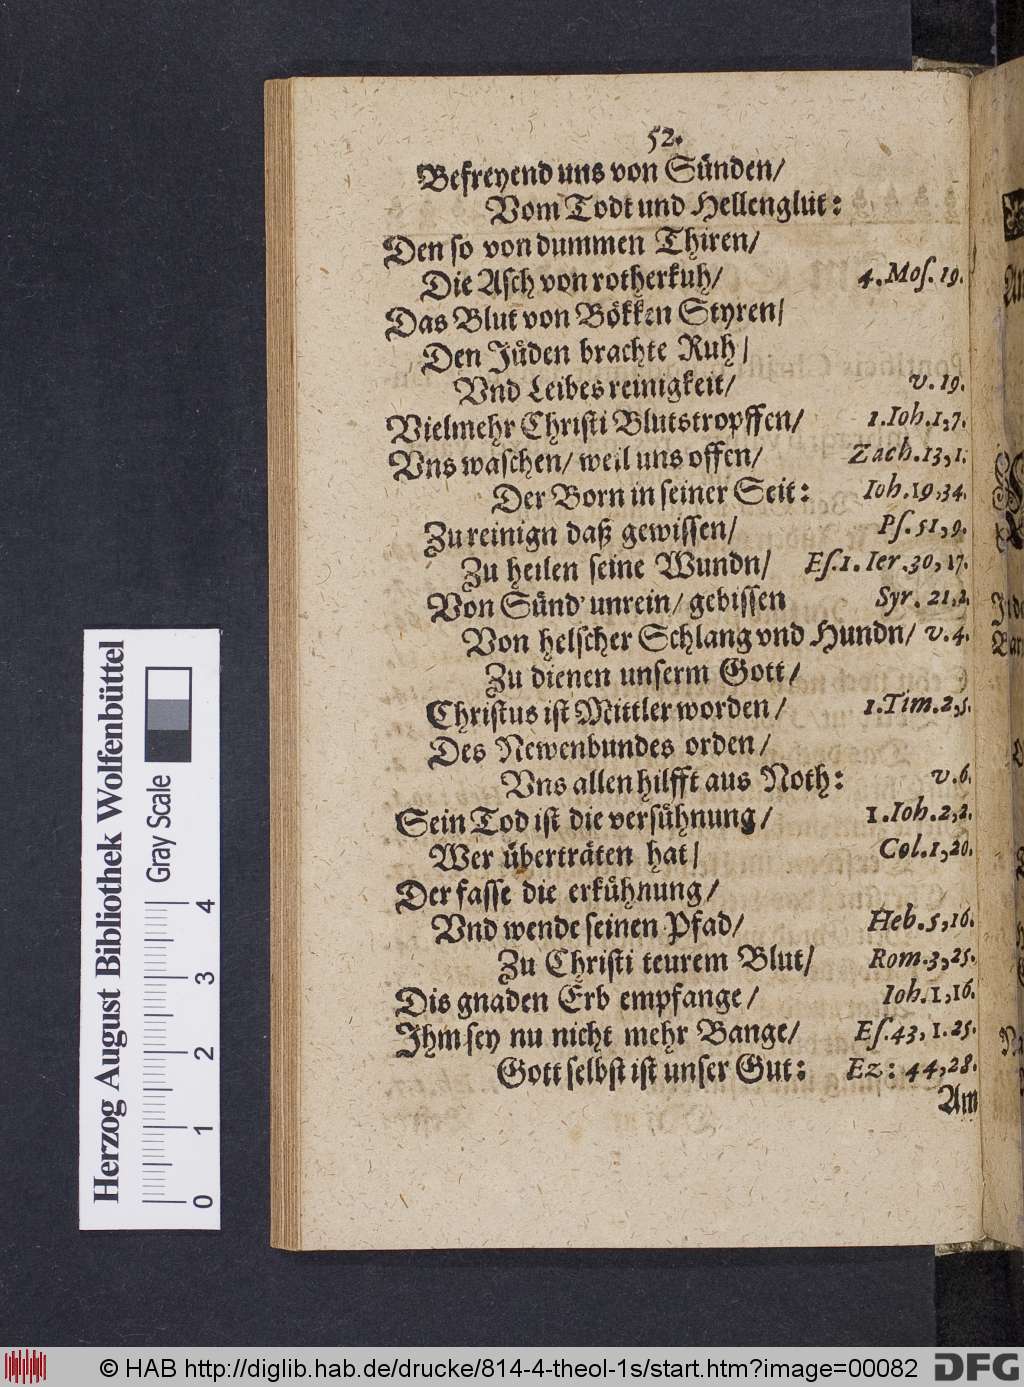 52.
Befreyend uns von Sünden/
Vom Todt und Hellenglut:
Den so von dummen Thiren/
Die Asch von rotherkuh/ 4. Mos. 19.
Das Blut von Bökken Styren/
Den Jüden brachte Ruh/
Vnd Leibes reinigkeit/ v. 19.
Vielmehr Christi Blutstropffen/ 1. Ioh. 1,7.
Vns waschen/ weil uns offen/ Zach. 13,1.
Der Born in seiner Seit: Ioh. 19,34.
Zu reinign daß gewissen/ Ps. 51,9.
Zu heilen seine Wundn/ Es. 1. Ier. 30, 17.
Von Sünd' unrein/ gebissen Syr. 21,2.
Von helscher Schlang vnd Hundn/ v. 4.
Zu dienen unserm Gott/
Christus ist Mittler worden/ 1. Tim. 2,5.
Des Newenbundes orden/
Vns allen hilfft aus Noth: v. 6.
Sein Tod ist die versühnung/ 1. Ioh. 2,2.
Wer überträten hat/ Col. 1,20.
Der fasse die erkühnung/
Vnd wende seinen Pfad/ Heb. 5,16.
Zu Christi teurem Blut/ Rom. 3,25.
Dis gnaden Erb empfange/ Ioh. 1,16.
Ihm sey nu nicht mehr Bange/ Es. 43, 1. 25.
Gott selbst ist unser Gut: Ez: 44,28.
Am
Herzog August Bibliothek Wolfenbüttel
Gray Scale
0 1 2 3 4
© HAB http://diglib.hab.de/drucke/814-4-theol-1s/start.htm?image=00082
DFG